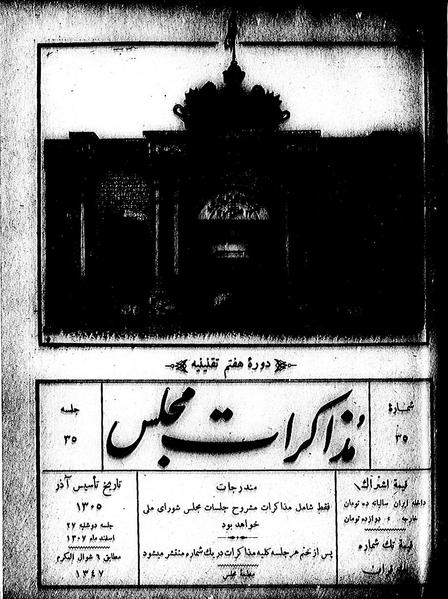 دورهٔ هفتم تقنینیه
شمارهٔ
۳۵
مذاکرات مجلس
جلسه
۳۵
قیمة اشتراک
داخله ایران سالیانه ده تومان
خارجه دوازده تومان
قیمة تک شماره
قران
مندرجات
فقط شامل مذاکرات مشروح جلسات مجلس شورای ملی
خواهد بود
پس از ختم هر جلسه کلیه مذاکرات در یک شماره منتشر میشود
مطبعهٔ مجلس
تاریخ تأسیس آذر
۱۳۰۵
جلسه دوشنبه ۲۷
اسفند ماه ۱۳۰۷
مطابق ۶ شوال المکرم
۱۳۴۷